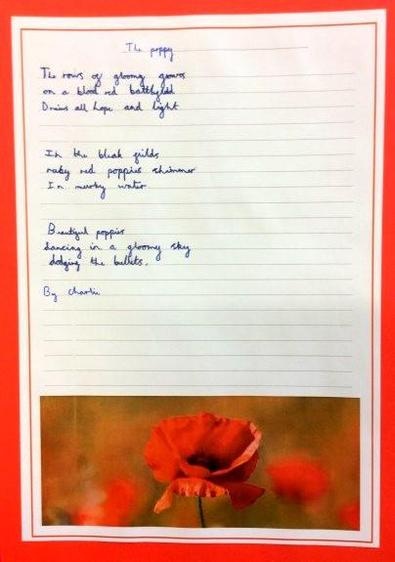 The poppy
The rows of gloomy graves
on a blood red battlefield
Drains all hope and light
In the bleak fields
ruby red poppies shimmer
In murky water
Beautiful poppies
dancing in a gloomy sky
dodging the bullets.
By Charlie